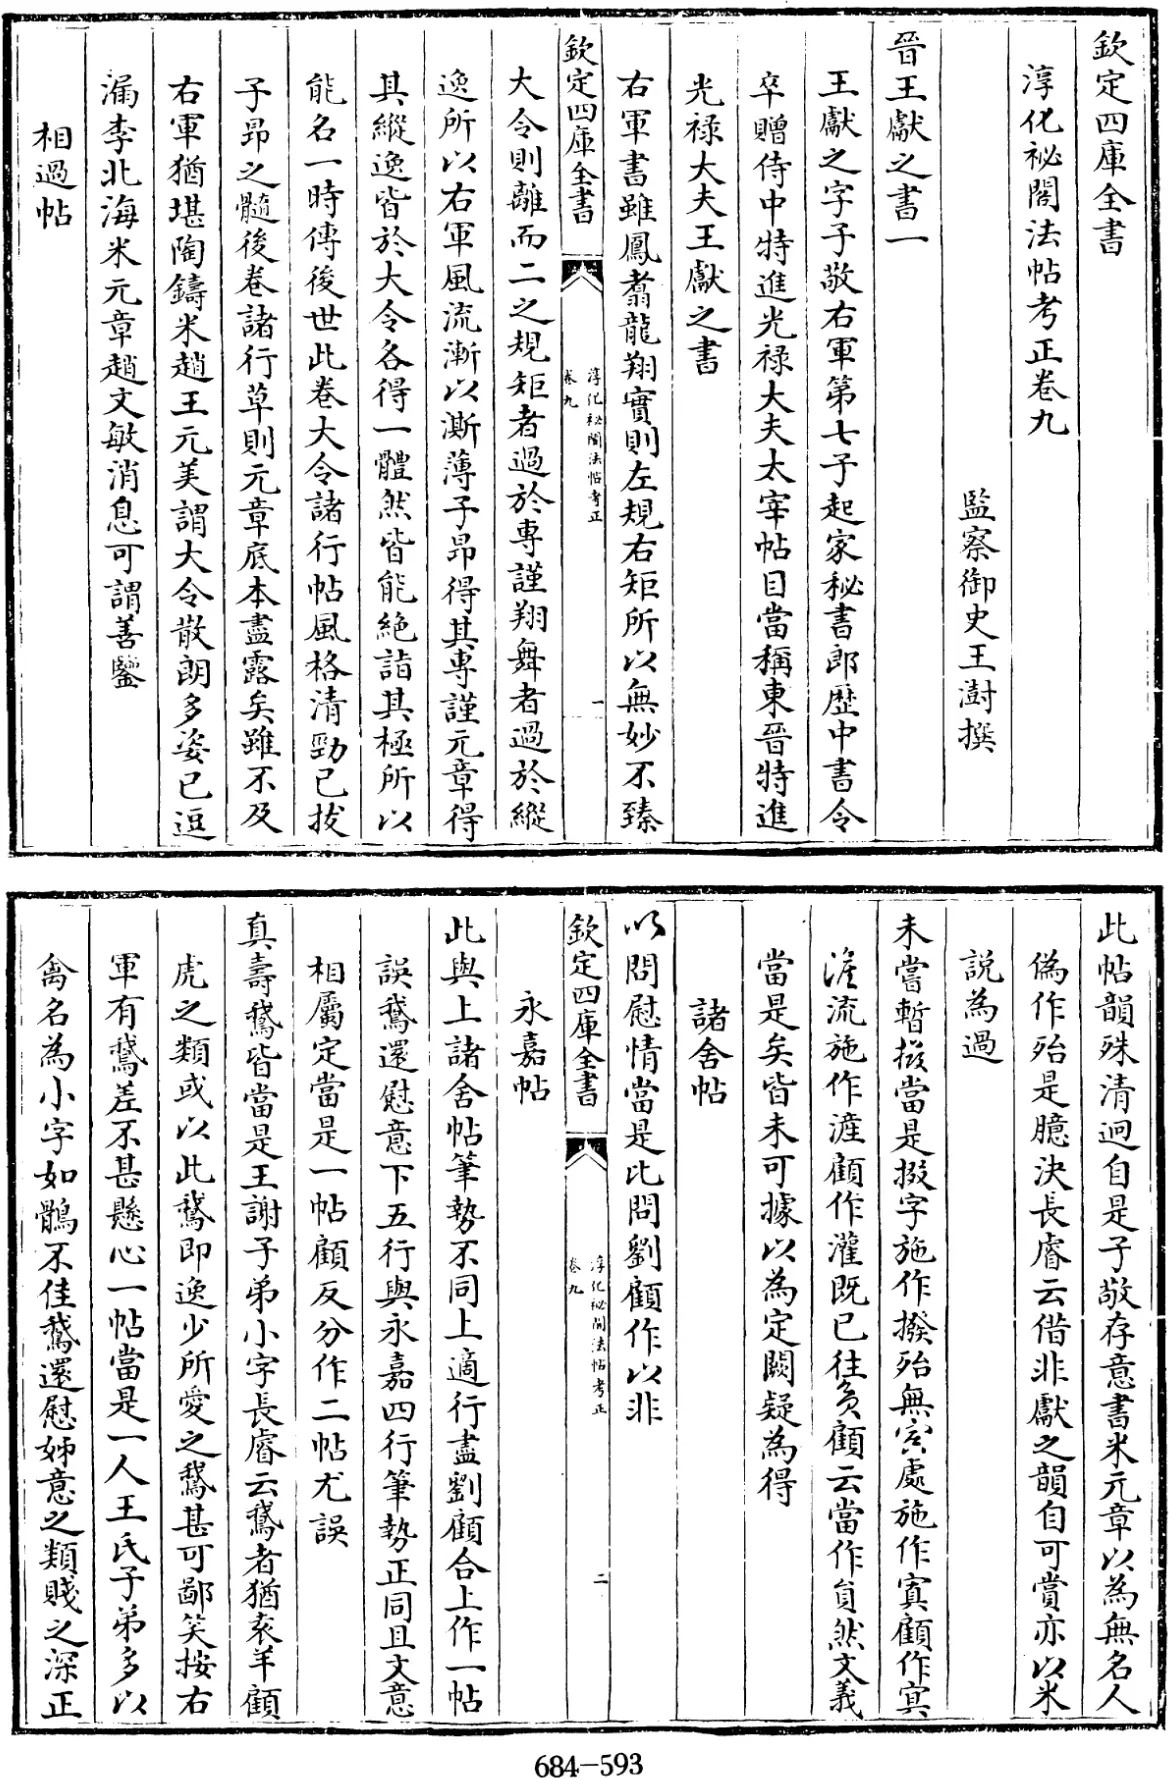 欽定四庫全書
淳化祕閣法帖考正卷九
監察御史王澍撰
晉王獻之書一
王獻之字子敬右軍第七子起家秘書郎歷中書令
卒贈侍中特進光祿大夫太宰帖目當稱東晉特進
光祿大夫王獻之書
右軍書雖鳳翥龍翔實則左規右矩所以無妙不臻
欽定四庫全書
淳化祕閣法帖考正
卷九
一
大令則離而二之規矩者過於專謹翔舞者過於縱
逸所以右軍風流漸以澌薄子昂得其專謹元章得
其縱逸皆於大令各得一體然皆能絶詣其極所以
能名一時傳後世此卷大令諸行帖風格清勁已拔
子昂之髓後卷諸行草則元章底本盡露矣雖不及
右軍猶堪陶鑄米趙王元美謂大令散朗多姿已逗
漏李北海米元章趙文敏消息可謂善鑒
相過帖
此帖韻殊清迥自是子敬存意書米元章以為無名人
偽作殆是臆決長睿云借非獻之韻自可賞亦以米
説為過
未嘗暫掇當是掇字施作撥殆無㝐處施作寘顧作㝠
漄流施作漄顧作灌既已往矣顧云當作貟然文義
當是矣皆未可據以為定闕疑為得
諸舍帖
以問慰情當是比問劉顧作以非
欽定四庫全書
淳化祕閣法帖考正
卷九
二
永嘉帖
此與上諸舍帖筆勢不同上適行盡劉顧合上作一帖
誤鵞還慰意下五行與永嘉四行筆勢正同且文意
相屬定當是一帖顧反分作二帖尤誤
真壽鵞皆當是王謝子弟小字長睿云鵞者猶袁羊顧
虎之類或以此鵞即逸少所愛之鵞甚可鄙笑按右
軍有鵞差不甚懸心一帖當是一人王氏子弟多以
禽名為小字如鶻不佳鵞還慰姊意之類賤之深正
684-593